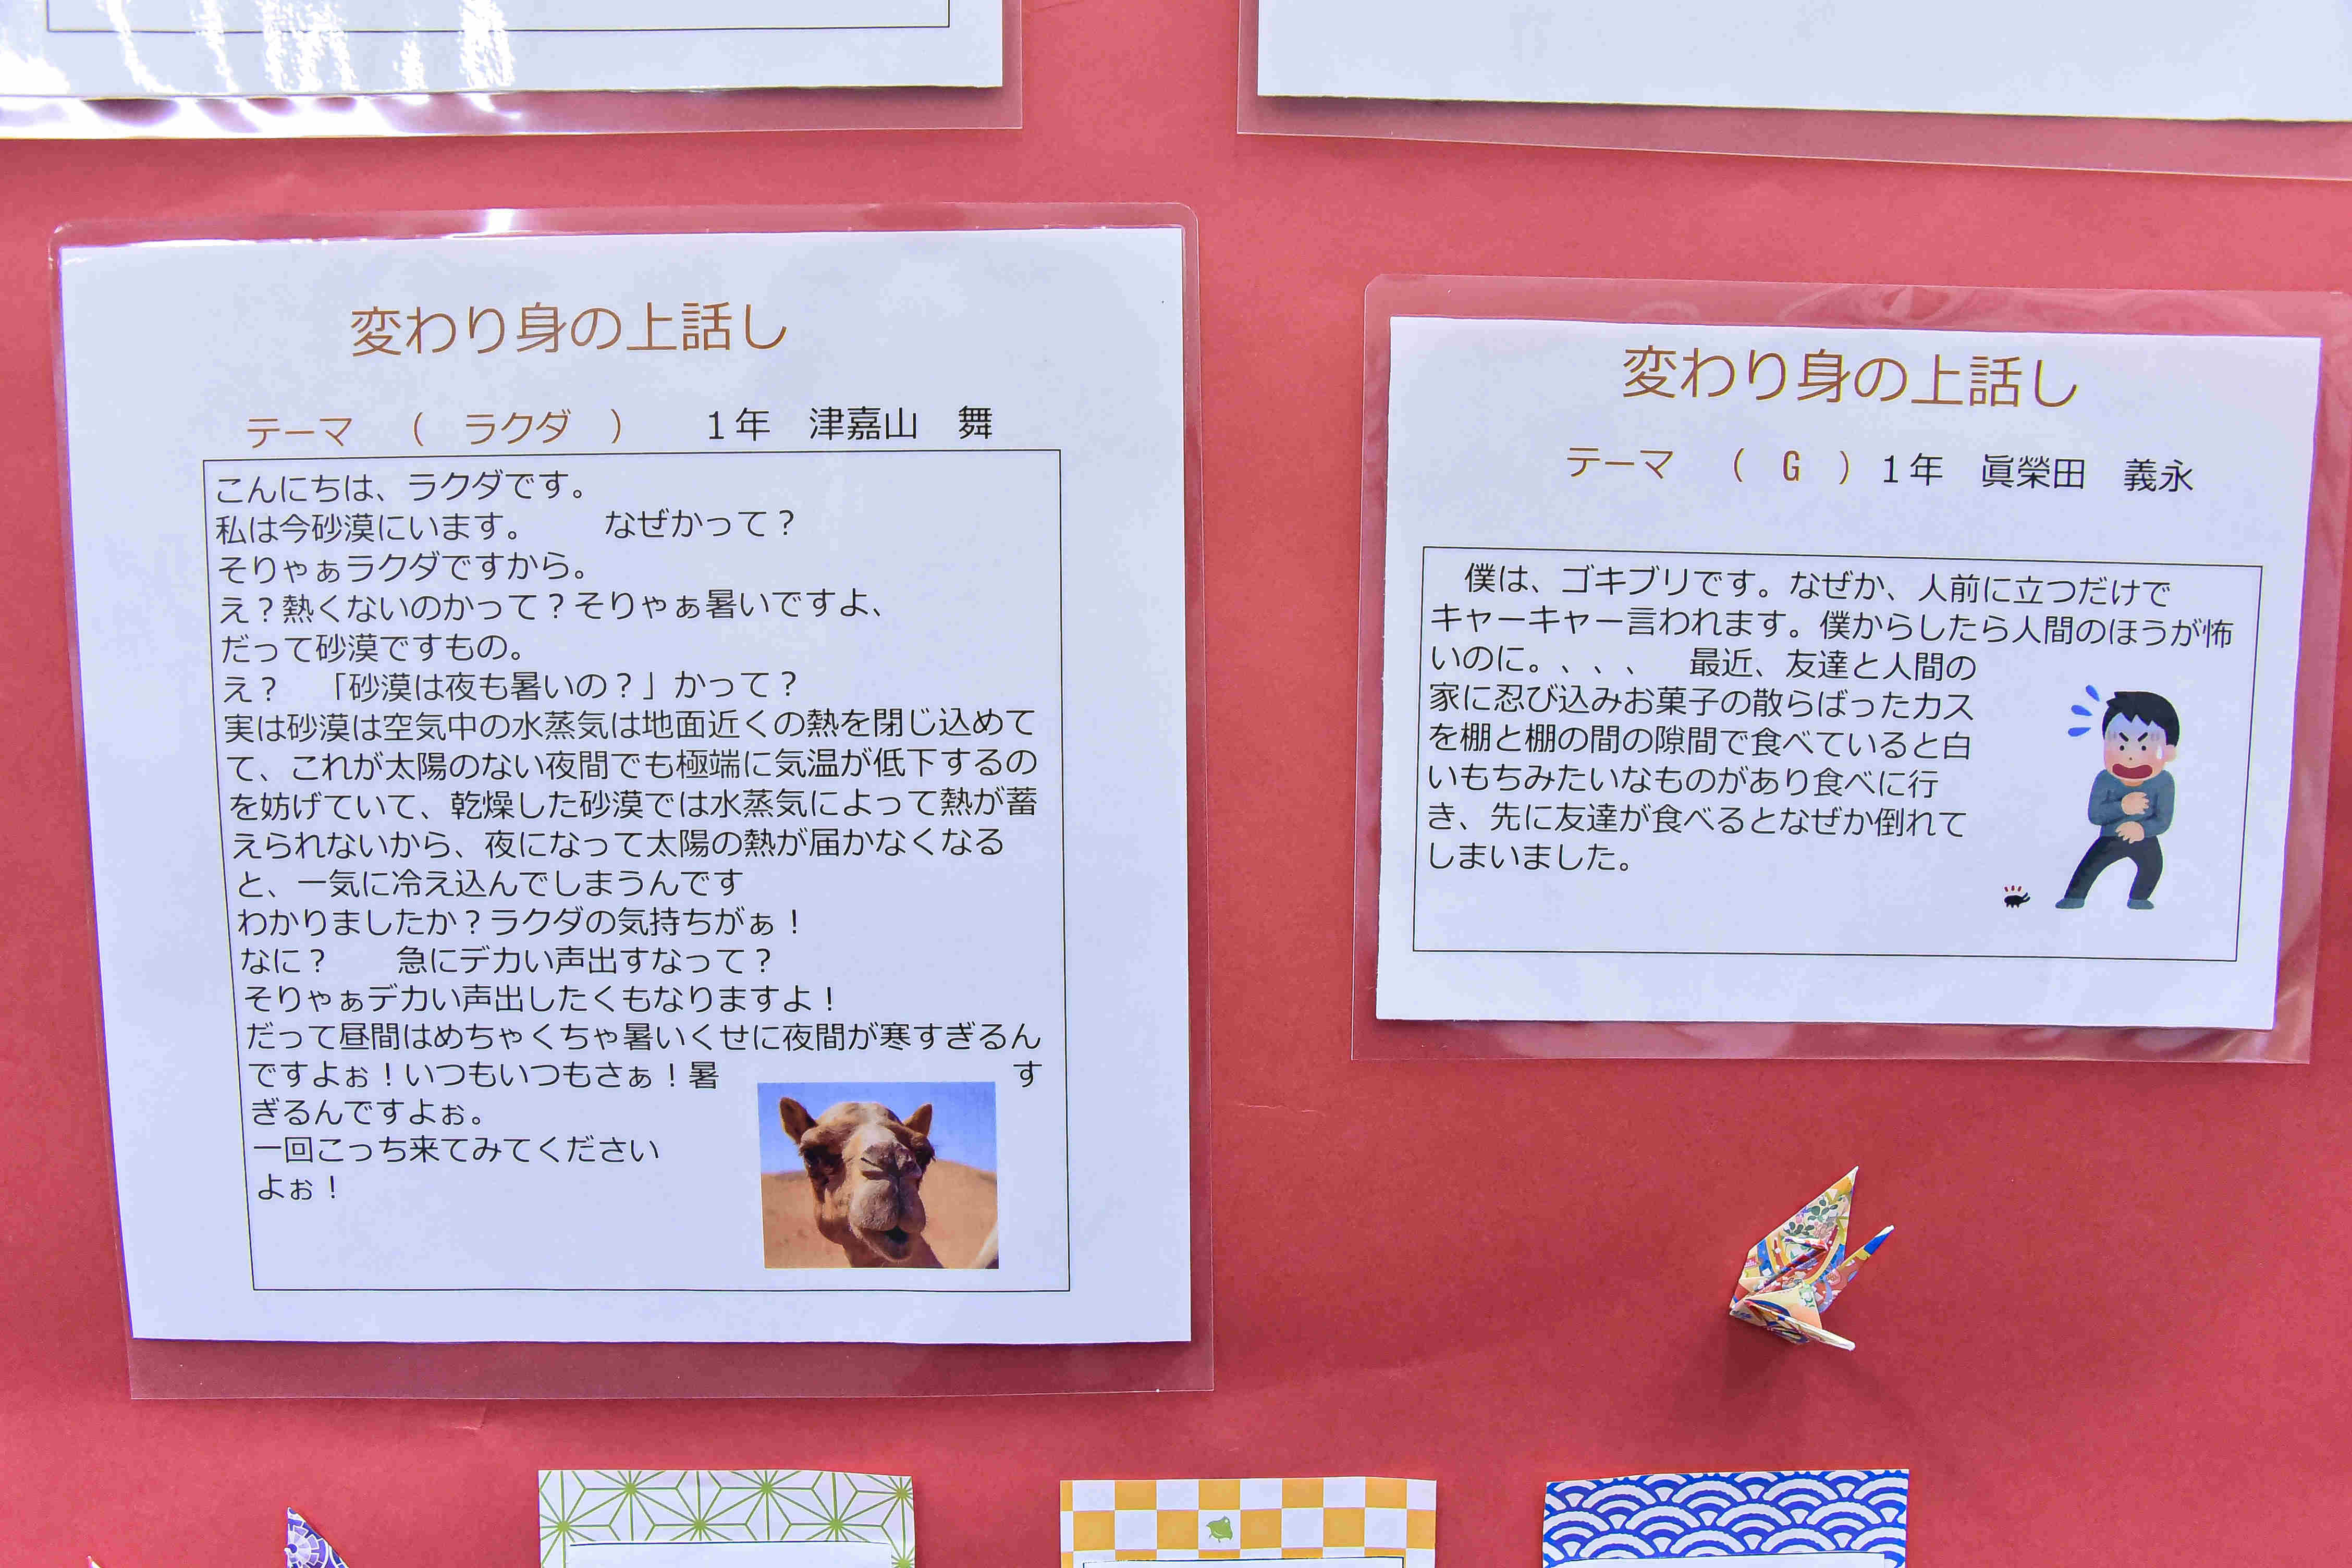 変わり身の上話し
テーマ （ ラクダ ） １年 津嘉山 舞
こんにちは、ラクダです。
私は今砂漠にいます。 なぜかって？
そりゃぁラクダですから。
え？熱くないのかって？そりゃぁ暑いですよ、
だって砂漠ですもの。
え？ 「砂漠は夜も暑いの？」かって？
実は砂漠は空気中の水蒸気は地面近くの熱を閉じ込めて
て、これが太陽のない夜間でも極端に気温が低下するの
を妨げていて、乾燥した砂漠では水蒸気によって熱が蓄
えられないから、夜になって太陽の熱が届かなくなる
と、一気に冷え込んでしまうんです
わかりましたか？ラクダの気持ちがぁ！
なに？ 急にデカい声出すなって？
そりゃぁデカい声出したくもなりますよ！
だって昼間はめちゃくちゃ暑いくせに夜間が寒すぎるん
ですよぉ！いつもいつもさぁ！暑 す
ぎるんですよぉ。
一回こっち来てみてください
よぉ！
変わり身の上話し
テーマ （ G ）１年 眞榮田 義永
僕は、ゴキブリです。なぜか、人前に立つだけで
キャーキャー言われます。僕からしたら人間のほうが怖
いのに。、、、 最近、友達と人間の
家に忍び込みお菓子の散らばったカス
を棚と棚の間の隙間で食べていると白
いもちみたいなものがあり食べに行
き、先に友達が食べるとなぜか倒れて
しまいました。